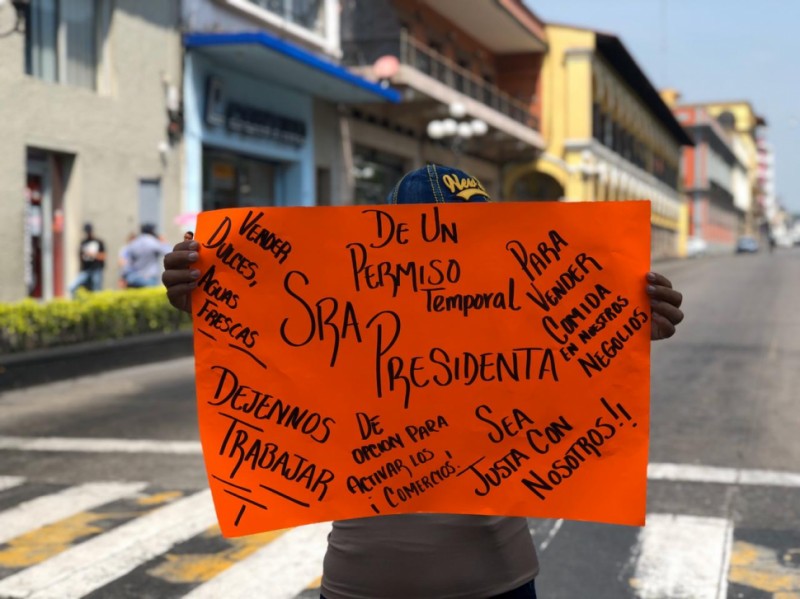 New
VENDER
DULCES,
AGUAS
FRESCAS
DE UN
PERMISO
Temporal
PARA
VENDER
COMIDA
EN NUESTROS
NEGOCIOS
SRA
PRESIDENTA
DEJENNOS
TRABAJAR
DE
OPCION PARA
ACTIVAR LOS
¡COMERCIOS!
SEA
JUSTA CON
NOSOTROS!!